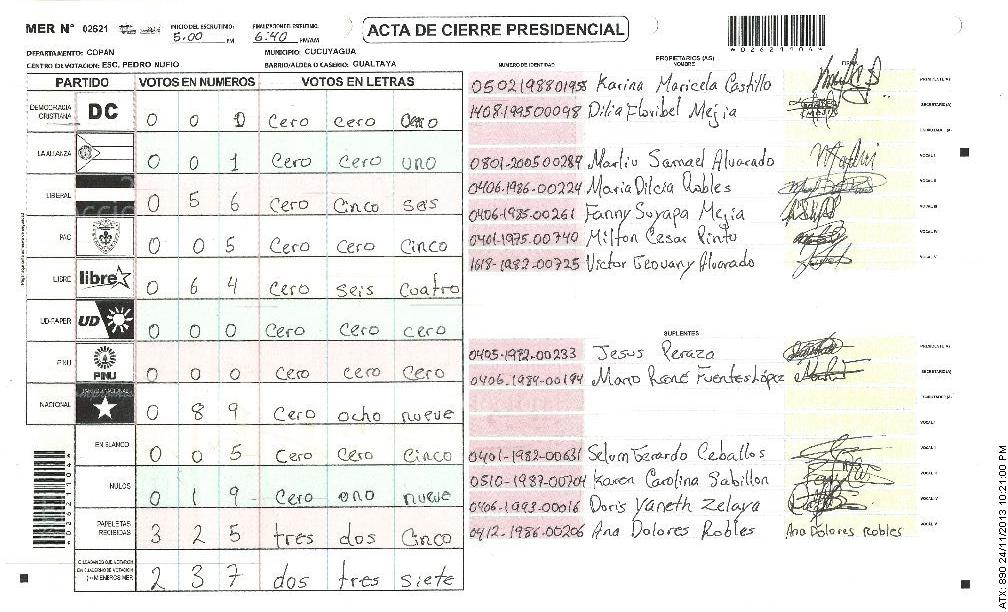 MER N° 02621 INICIO DEL ESCRUTINIO: 5.00 PM FINALIZACION DEL ESCRUTINIO: 6:40 PM/AM
ACTA DE CIERRE PRESIDENCIAL
DEPARTAMENTO: COPAN MUNICIPIO: CUCUYAGUA
CENTRO DE VOTACION: ESC. PEDRO NUFIO BARRIO/ALDEA O CASERIO: GUALTAYA
PARTIDO VOTOS EN NUMEROS VOTOS EN LETRAS
DEMOCRACIA CRISTIANA DC 0 0 0 Cero cero Cero
LA ALIANZA 0 0 1 Cero Cero uno
LIBERAL 0 5 6 Cero Cinco seis
PAC 0 0 5 Cero Cero Cinco
LIBRE libre 0 6 4 Cero seis cuatro
UD-FAPER UD 0 0 0 Cero Cero cero
PINU PINU 0 0 0 Cero cero Cero
NACIONAL 0 8 9 Cero ocho nueve
EN BLANCO 0 0 5 Cero Cero Cinco
NULOS 0 1 9 Cero uno nueve
PAPELETAS RECIBIDAS 3 2 5 tres dos Cinco
2 3 7 dos tres siete
NUMERO DE IDENTIDAD PROPIETARIOS (AS) NOMBRE FIRMA
0502198801958 Karina Maricela Castillo PRESIDENTE (A)
1408199500098 Dilia Floribel Mejia SECRETARIO (A)
ESCRUTADOR (A)
0801-2005 00289 Marliu Samael Alvarado VOCAL I
0406-1986-00224 Maria Dilcia Robles VOCAL II
0406-1985-00261 Fanny Suyapa Mejia VOCAL III
0401-1975-00740 Milton Cesar Pinto VOCAL IV
1618-1982-00725 Victor Geovany Alvarado VOCAL V
SUPLENTES
0405-1972-00233 Jesus Peraza PRESIDENTE (A)
0406-1989-00194 Mario René Fuentes López SECRETARIO (A)
ESCRUTADOR (A)
VOCAL I
0401-1982-00631 Selum Gerardo Ceballos VOCAL II
0510-1987-00704 Karen Carolina Sabillon VOCAL III
0406-1993-00016 Doris Yaneth Zelaya VOCAL IV
0412-1986-00206 Ana Dolores Robles Ana Dolores Robles VOCAL V
ATX: 890 24/11/2013 10:21:00 PM